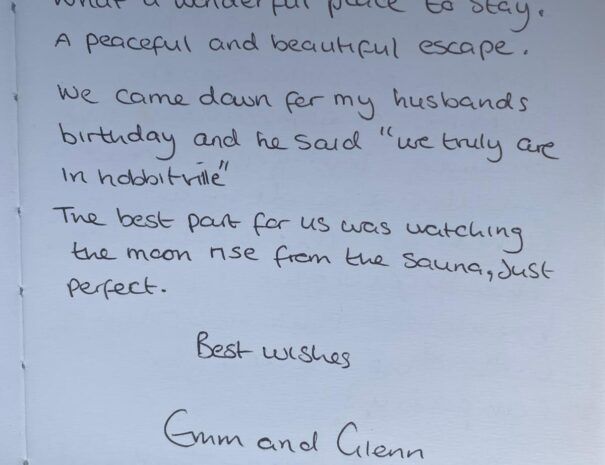 What a wonderful place to stay.
A peaceful and beautiful escape.
We came down for my husbands
birthday and he said "we truly are
in hobbitville"
The best part for us was watching
the moon rise from the sauna, Just
perfect.
Best wishes
Emm and Glenn